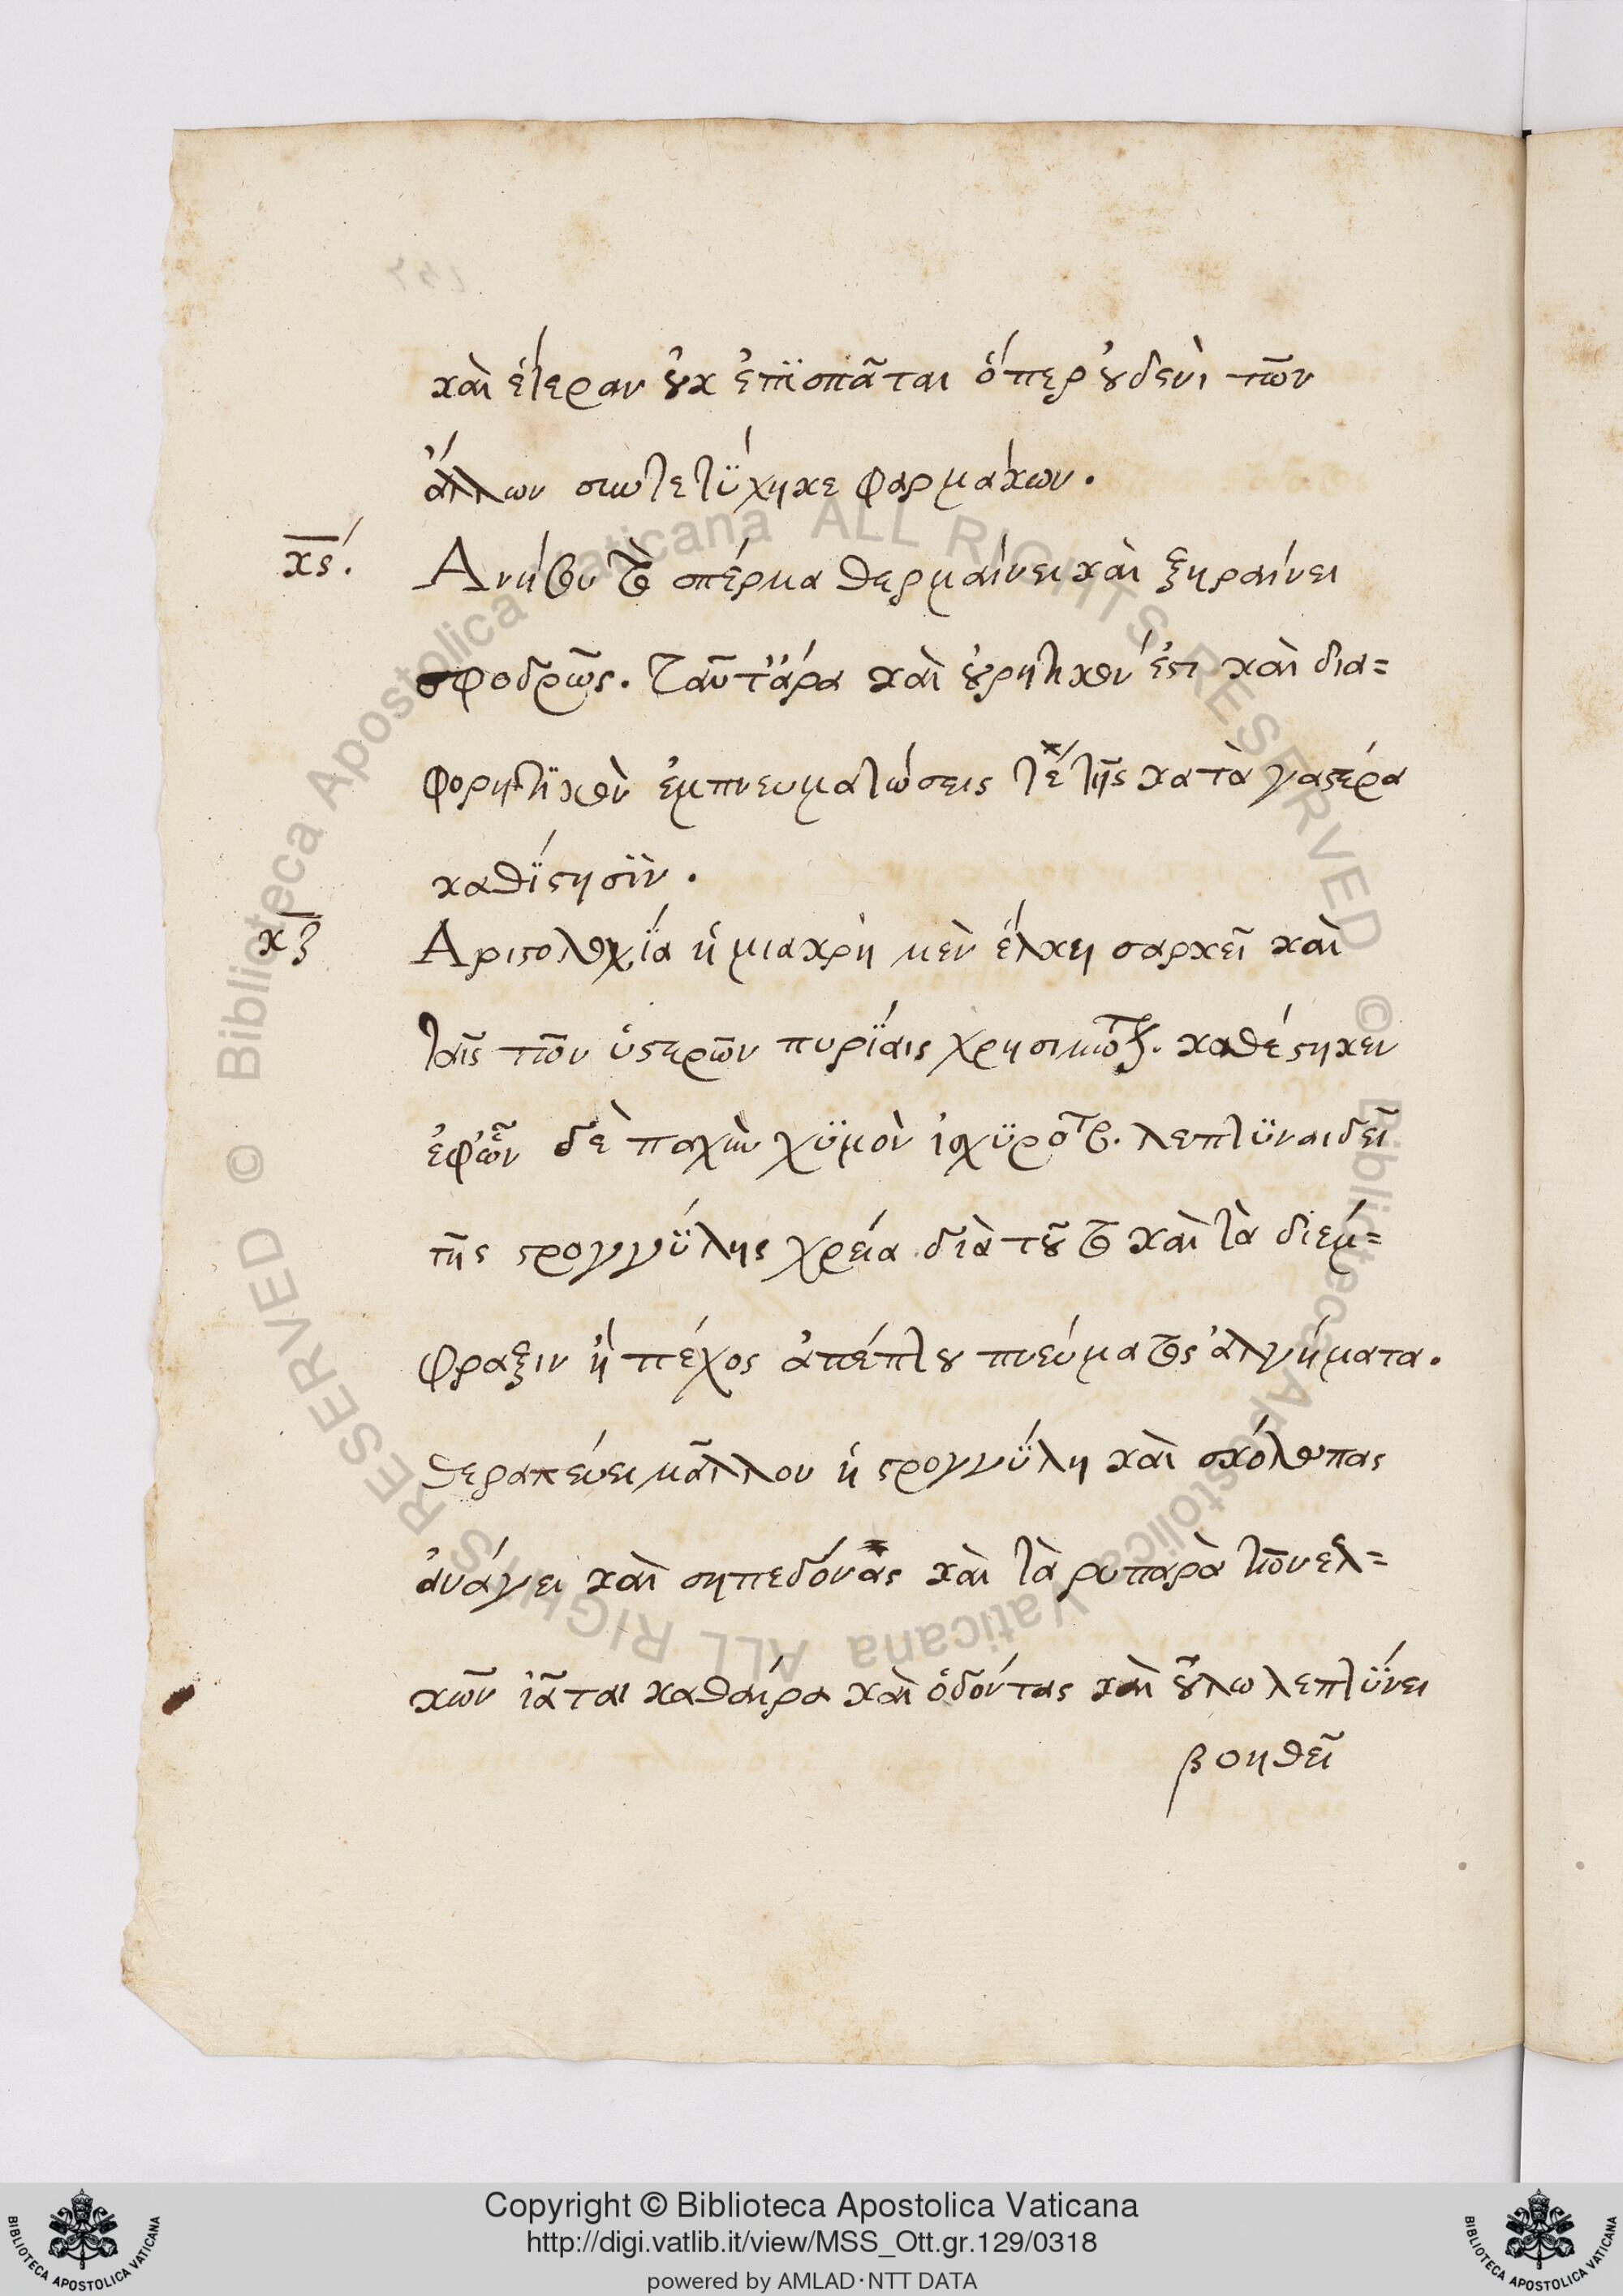 καὶ ἑτέραν οὐκ ἐπϊσπᾶται ὅπερ οὐδενὶ τῶν
ἄλλων συντετΰχηκε φαρμάκων.
κϛ΄. Ανήθου τὸ σπέρμα θερμαίνει καὶ ξηραίνει
σφοδρῶς. ταῦτ' ἄρα καὶ οὐρητικόν ἐστι καὶ δια=
φορητϊκὸν ἐμπνευματώσεις τὲ τῆς κατὰ γαστέρα
καθΐστησϊν.
κζ Αριστολοχΐα ἡ μιακρὴ μὲν ἕλκη σαρκεῖ καὶ
ταῖς τῶν ὑστερῶν πυρΐαις χρησιμωτ. καθέστηκεν
ἐφ' ὧν δὲ παχὺν χϋμὸν ἰσχϋροτ. λεπτϋναι δεῖ
τῆς στρογγΰλης χρεία διὰ τοῦτο καὶ τὰ διέμ=
φραξιν ἢ πέχος ἀπέπτου πνεύματος ἀλγήματα.
θεραπεύει μᾶλλον ἡ στρογγΰλη καὶ σκόλοπας
ἀνάγει καὶ σηπεδόνας καὶ τὰ ρυπαρὰ τῶν ελ=
κῶν ἰᾶται καθαίρα καὶ ὀδόντας καὶ οὖλω λεπτΰνει
βοηθεῖ
Copyright © Biblioteca Apostolica Vaticana
http://digi.vatlib.it/view/MSS_Ott.gr.129/0318
powered by AMLAD·NTT DATA